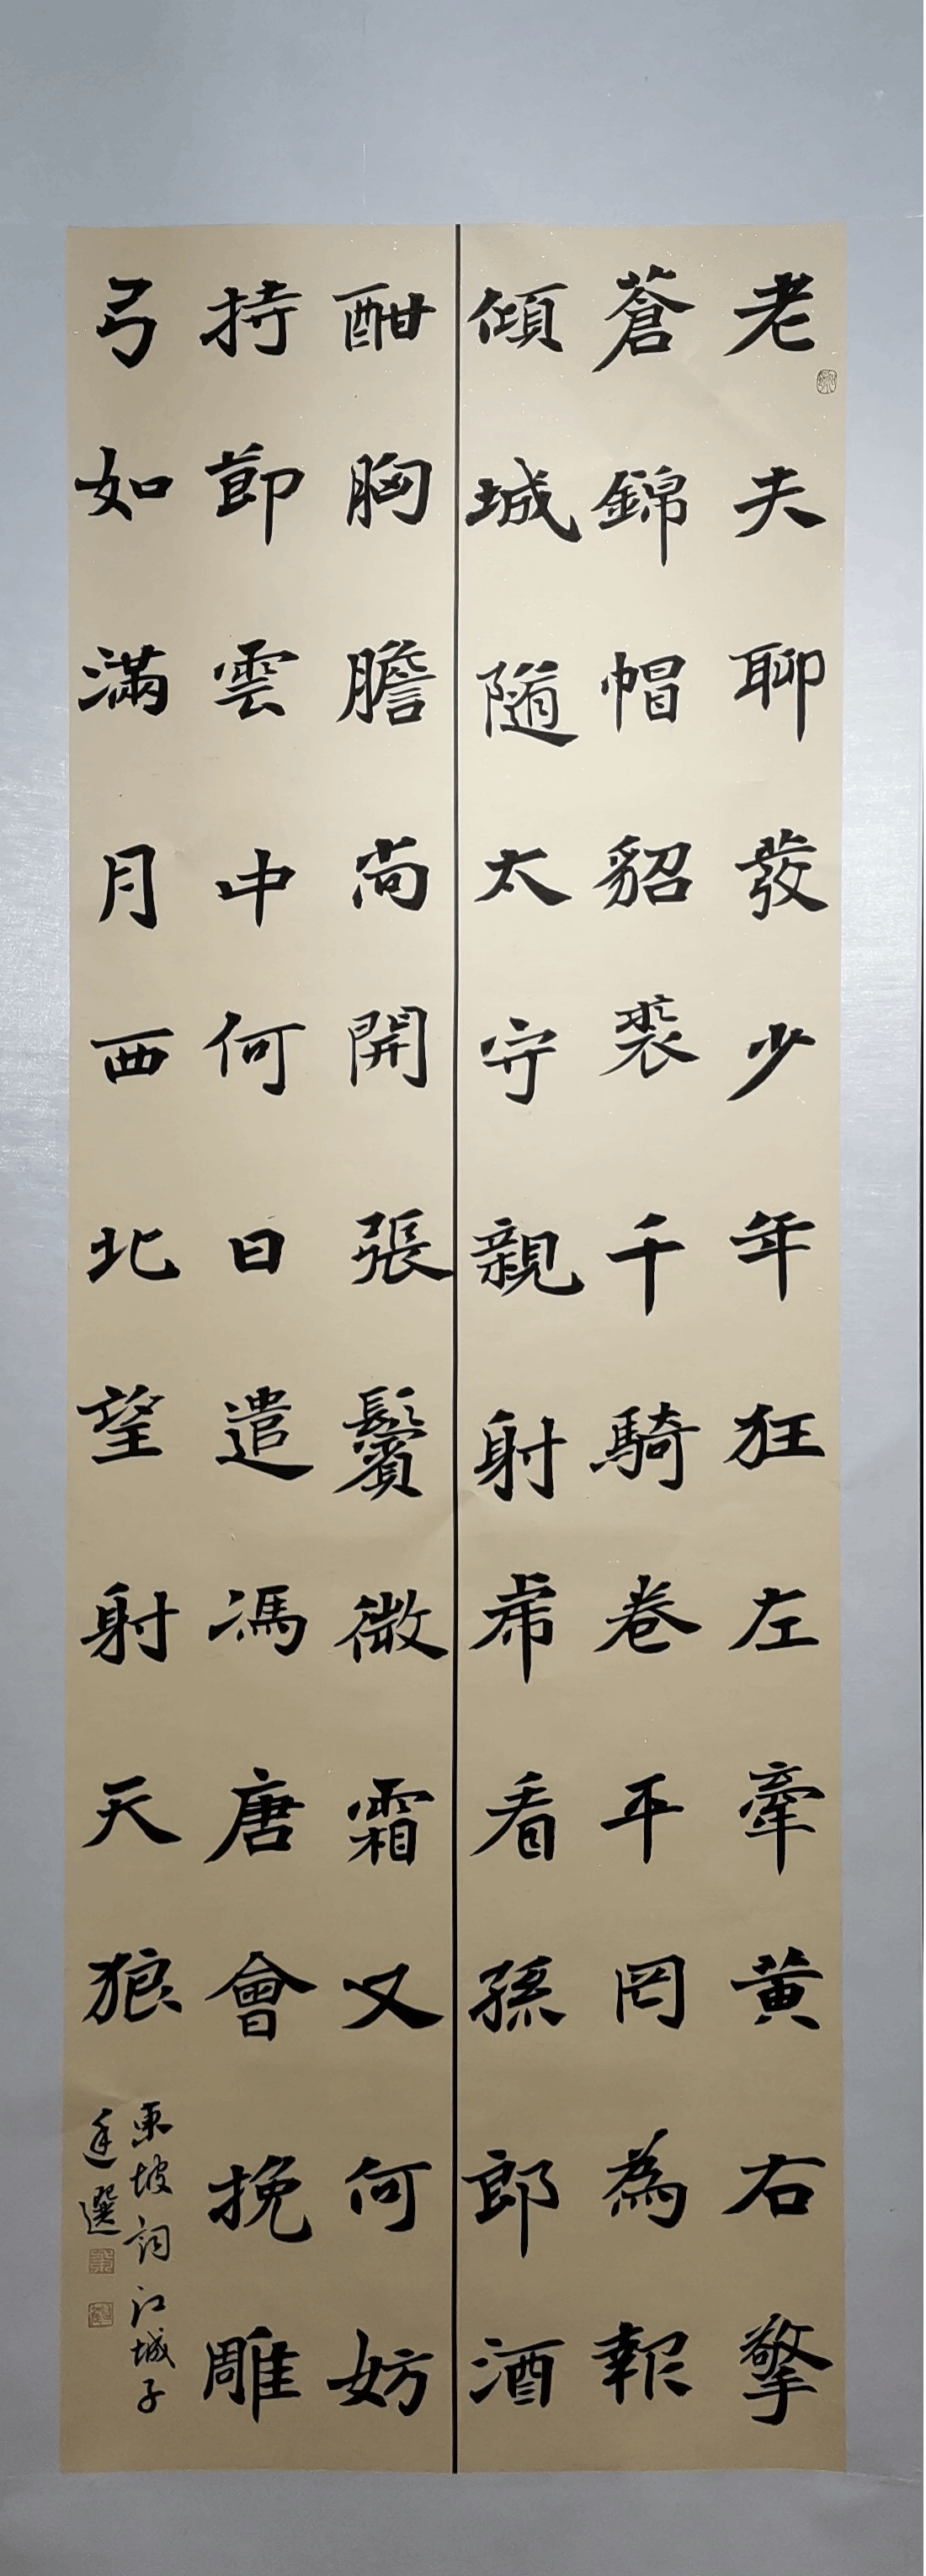 老夫聊發少年狂左牽黃右擎
蒼錦帽貂裘千騎卷平岡為報
傾城隨太守親射虎看孫郎酒
酣胸膽尚開張鬢微霜又何妨
持節雲中何日遣馮唐會挽雕
弓如滿月西北望射天狼
東坡詞江城子
選